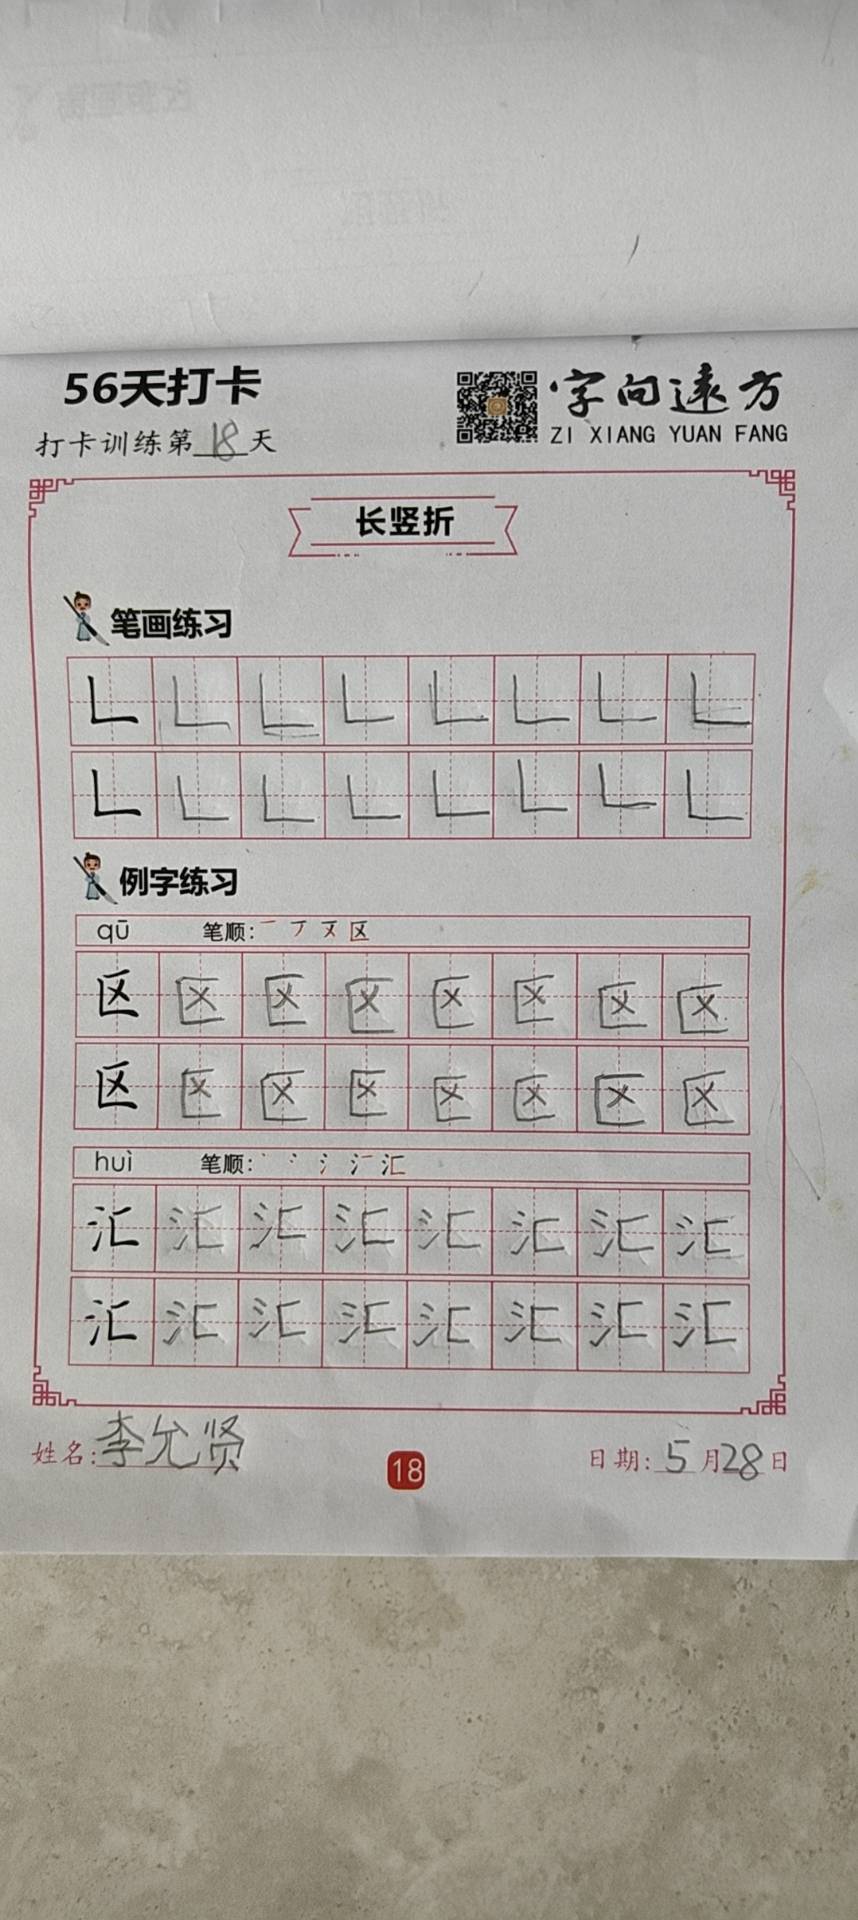 56天打卡
字向远方
打卡训练第18天
ZI XIANG YUAN FANG
长竖折
笔画练习
𠃊 𠃊 𠃊 𠃊 𠃊 𠃊 𠃊 𠃊
𠃊 𠃊 𠃊 𠃊 𠃊 𠃊 𠃊 𠃊
例字练习
qū 笔顺: 区
区 区 区 区 区 区 区 区
区 区 区 区 区 区 区 区
huì 笔顺: 汇
汇 汇 汇 汇 汇 汇 汇 汇
汇 汇 汇 汇 汇 汇 汇 汇
姓名:李允贤
18
日期:5月28日